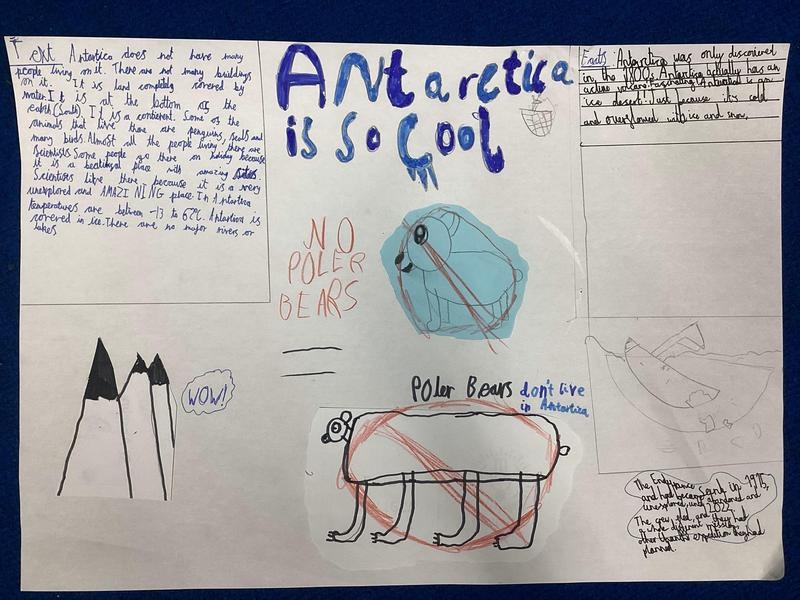 Text Antartica does not have many
people living on it. There are not many buildings
on it. It is land completly covered by
water. It is at the bottom of the
earth (South). It is a continent. Some of the
animals that live there are penguins, seals and
many birds. Almost all the people living there are
Scientists. Some people go there on holiday because
it is a beatigal place with amazing sites
Scientists live there because it is a very
unexplored and AMAZI NING place. In Antartica
temperatures are between -13 to 62°C. Antartica is
covered in ice. There are no major rivers or
lakes
Antarctica
is so Cool
NO
POLER
BEARS
WOW!
Poler Bears don't live
in Antartica
Facts: Antartica was only discovered
in the 1800s. Antartica actually has an
active volcano. Fascinating Antartica is an
ice desert. Just because it's cold
and overflowed with ice and snow,
The Endurance sank in 1915,
and had became
unexplored, until abandoned and
2022
The crew fled, and they had
a whole different mission,
other than the expedition they had
planned.